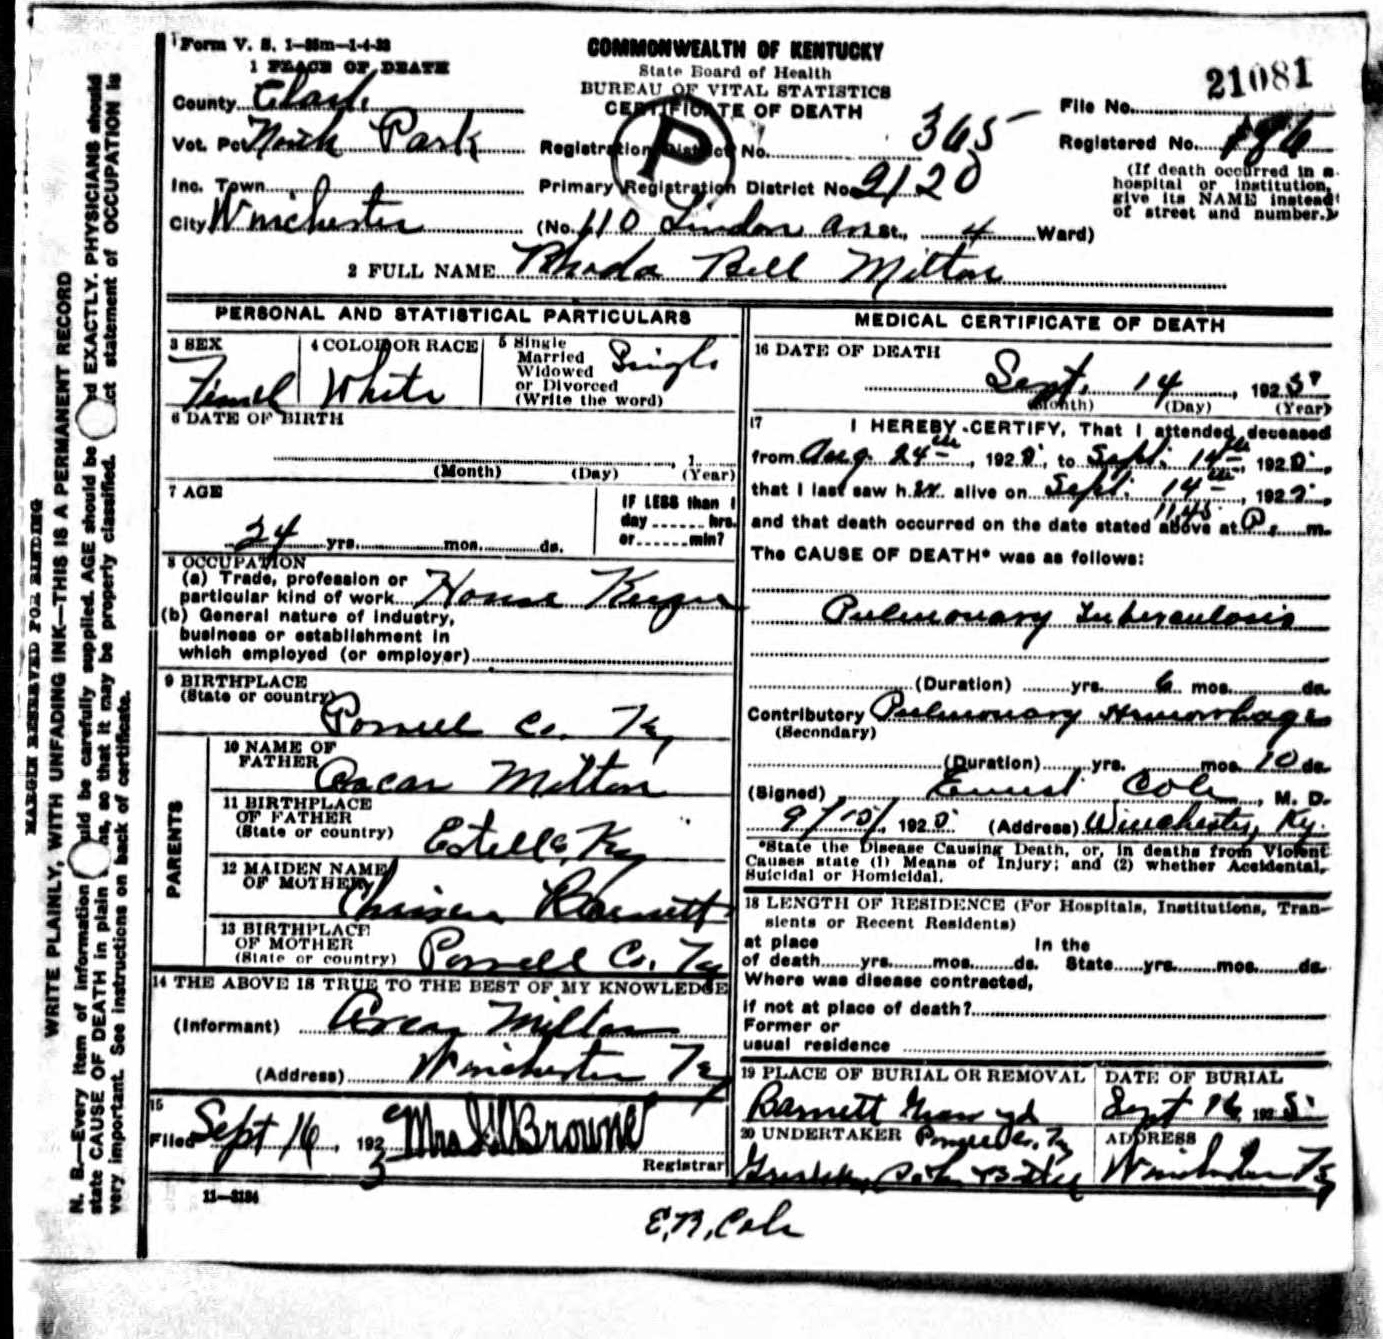 Form V. S. 1—35m—1-4-23
COMMONWEALTH OF KENTUCKY
State Board of Health
BUREAU OF VITAL STATISTICS
CERTIFICATE OF DEATH
1 PLACE OF DEATH
County Clark
Vot. Pct North Park
Inc. Town
City Winchester
Registration District No. 365
Primary Registration District No. 2120
P
(No. 110 Lindon Ave St., 4 Ward)
File No. 21081
Registered No. 186
(If death occurred in a
hospital or institution,
give its NAME instead
of street and number.)
2 FULL NAME Rhoda Bell Milton
PERSONAL AND STATISTICAL PARTICULARS
3 SEX
Femal
4 COLOR OR RACE
White
5 Single
Married
Widowed
or Divorced
(Write the word)
Single
6 DATE OF BIRTH
, 1
(Month) (Day) (Year)
7 AGE
24 yrs. mos. ds.
IF LESS than 1
day ...... hrs.
or ...... min?
8 OCCUPATION
(a) Trade, profession or
particular kind of work House Keeper
(b) General nature of industry,
business or establishment in
which employed (or employer)
9 BIRTHPLACE
(State or country)
Powell Co. Ky
PARENTS
10 NAME OF
FATHER Oscar Milton
11 BIRTHPLACE
OF FATHER
(State or country) Estelle, Ky
12 MAIDEN NAME
OF MOTHER Barnett
13 BIRTHPLACE
OF MOTHER
(State or country) Powell Co. Ky
14 THE ABOVE IS TRUE TO THE BEST OF MY KNOWLEDGE
(Informant) Oscar Milton
(Address) Winchester Ky
15
Filed Sept 16, 192 Mrs Browne
Registrar
11—3184
MEDICAL CERTIFICATE OF DEATH
16 DATE OF DEATH
Sept. 14, 1925
(Month) (Day) (Year)
17 I HEREBY CERTIFY, That I attended deceased
from Aug. 24th, 1925, to Sept. 14th, 1925,
that I last saw her alive on Sept. 14th, 1925,
11,45
and that death occurred on the date stated above at P. m.
The CAUSE OF DEATH* was as follows:
Pulmonary Tuberculosis
(Duration) yrs. 6 mos. ds.
Contributory Pulmonary Hemorrhage
(Secondary)
(Duration) yrs. mos. 10 ds.
(Signed) Ernest Cole, M. D.
9/15/, 1925 (Address) Winchester, Ky.
*State the Disease Causing Death, or, in deaths from Violent
Causes state (1) Means of Injury; and (2) whether Accidental,
Suicidal or Homicidal.
18 LENGTH OF RESIDENCE (For Hospitals, Institutions, Tran-
sients or Recent Residents)
at place In the
of death yrs. mos. ds. State yrs. mos. ds.
Where was disease contracted,
if not at place of death?
Former or
usual residence
19 PLACE OF BURIAL OR REMOVAL
Barnett Grave yd
Powell Co. Ky
DATE OF BURIAL
Sept 16, 1925
20 UNDERTAKER
ADDRESS
Winchester Ky
E, R, Cole
MARGIN RESERVED FOR BINDING
WRITE PLAINLY, WITH UNFADING INK—THIS IS A PERMANENT RECORD
N. B.—Every item of information should be carefully supplied. AGE should be EXACTLY. PHYSICIANS should
state CAUSE OF DEATH in plain so that it may be properly classified. statement of OCCUPATION is
very important. See instructions on back of certificate.